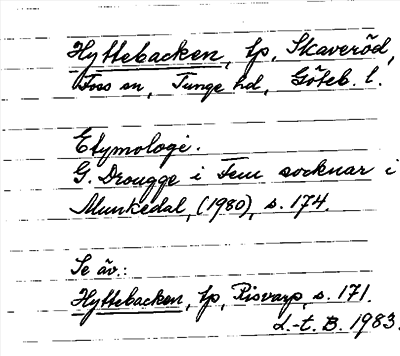 Hyttebacken, tp, Skaveröd,
Foss sn, Tunge hd, Göteb. l.
Etymologi.
G. Drougge i Fem socknar i
Munkedal, (1980), s. 174.
Se äv.:
Hyttebacken, tp, Risvarp, s. 171.
L.-t. B. 1983.